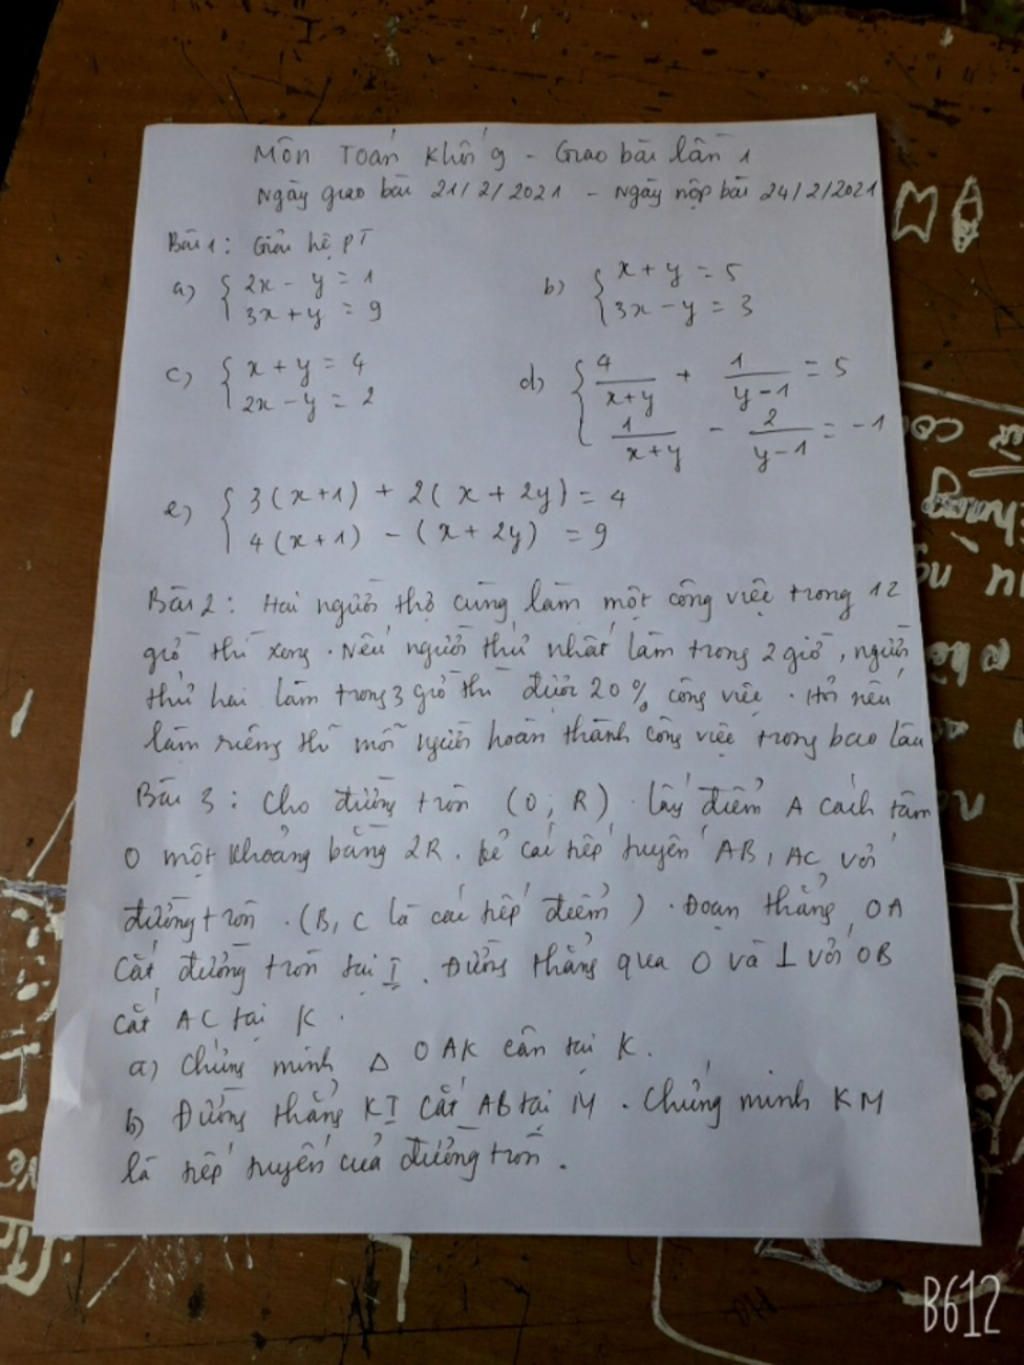 Môn Toán Khối 9 - Giao bài lần 1
Ngày giao bài 21/2/2021 - Ngày nộp bài 24/2/2021
Bài 1: Giải hệ PT
a) { 2x - y = 1 b) { x + y = 5
3x + y = 9 3x - y = 3
c) { x + y = 4 d) { 4/(x+y) + 1/(y-1) = 5
2x - y = 2 1/(x+y) - 2/(y-1) = -1
e) { 3(x+1) + 2(x+2y) = 4
4(x+1) - (x+2y) = 9
Bài 2: Hai người thợ cùng làm một công việc trong 12
giờ thì xong. Nếu người thứ nhất làm trong 2 giờ, người
thứ hai làm trong 3 giờ thì được 20% công việc. Hỏi nếu
làm riêng thì mỗi người hoàn thành công việc trong bao lâu
Bài 3: Cho đường tròn (O; R). Lấy điểm A cách tâm
O một khoảng bằng 2R. kẻ các tiếp tuyến AB, AC với
đường tròn. (B, C là các tiếp điểm). Đoạn thẳng OA
Cắt đường tròn tại I. Đường thẳng qua O và ⊥ với OB
Cắt AC tại K.
a) Chứng minh △ OAK cân tại K.
b) Đường thẳng KI cắt AB tại M. Chứng minh KM
là tiếp tuyến của đường tròn.
B612